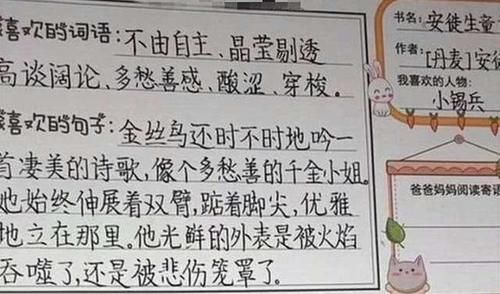 喜欢的词语：不由自主、晶莹剔透
高谈阔论、多愁善感、酸涩、穿梭。
喜欢的句子：金丝鸟还时不时地吟一
首凄美的诗歌，像个多愁善的千金小姐。
她始终伸展着双臂，踮着脚尖，优雅
地立在那里。他光鲜的外表是被火焰
吞噬了，还是被悲伤笼罩了。
书名：安徒生童
作者：[丹麦]安徒
我喜欢的人物：
小锡兵
爸爸妈妈阅读寄语